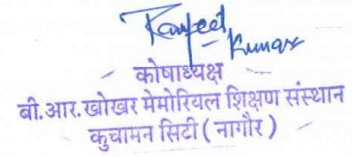 Ranjeet
Kumar
कोषाध्यक्ष
बी.आर.खोखर मेमोरियल शिक्षण संस्थान
कुचामन सिटी ( नागौर )